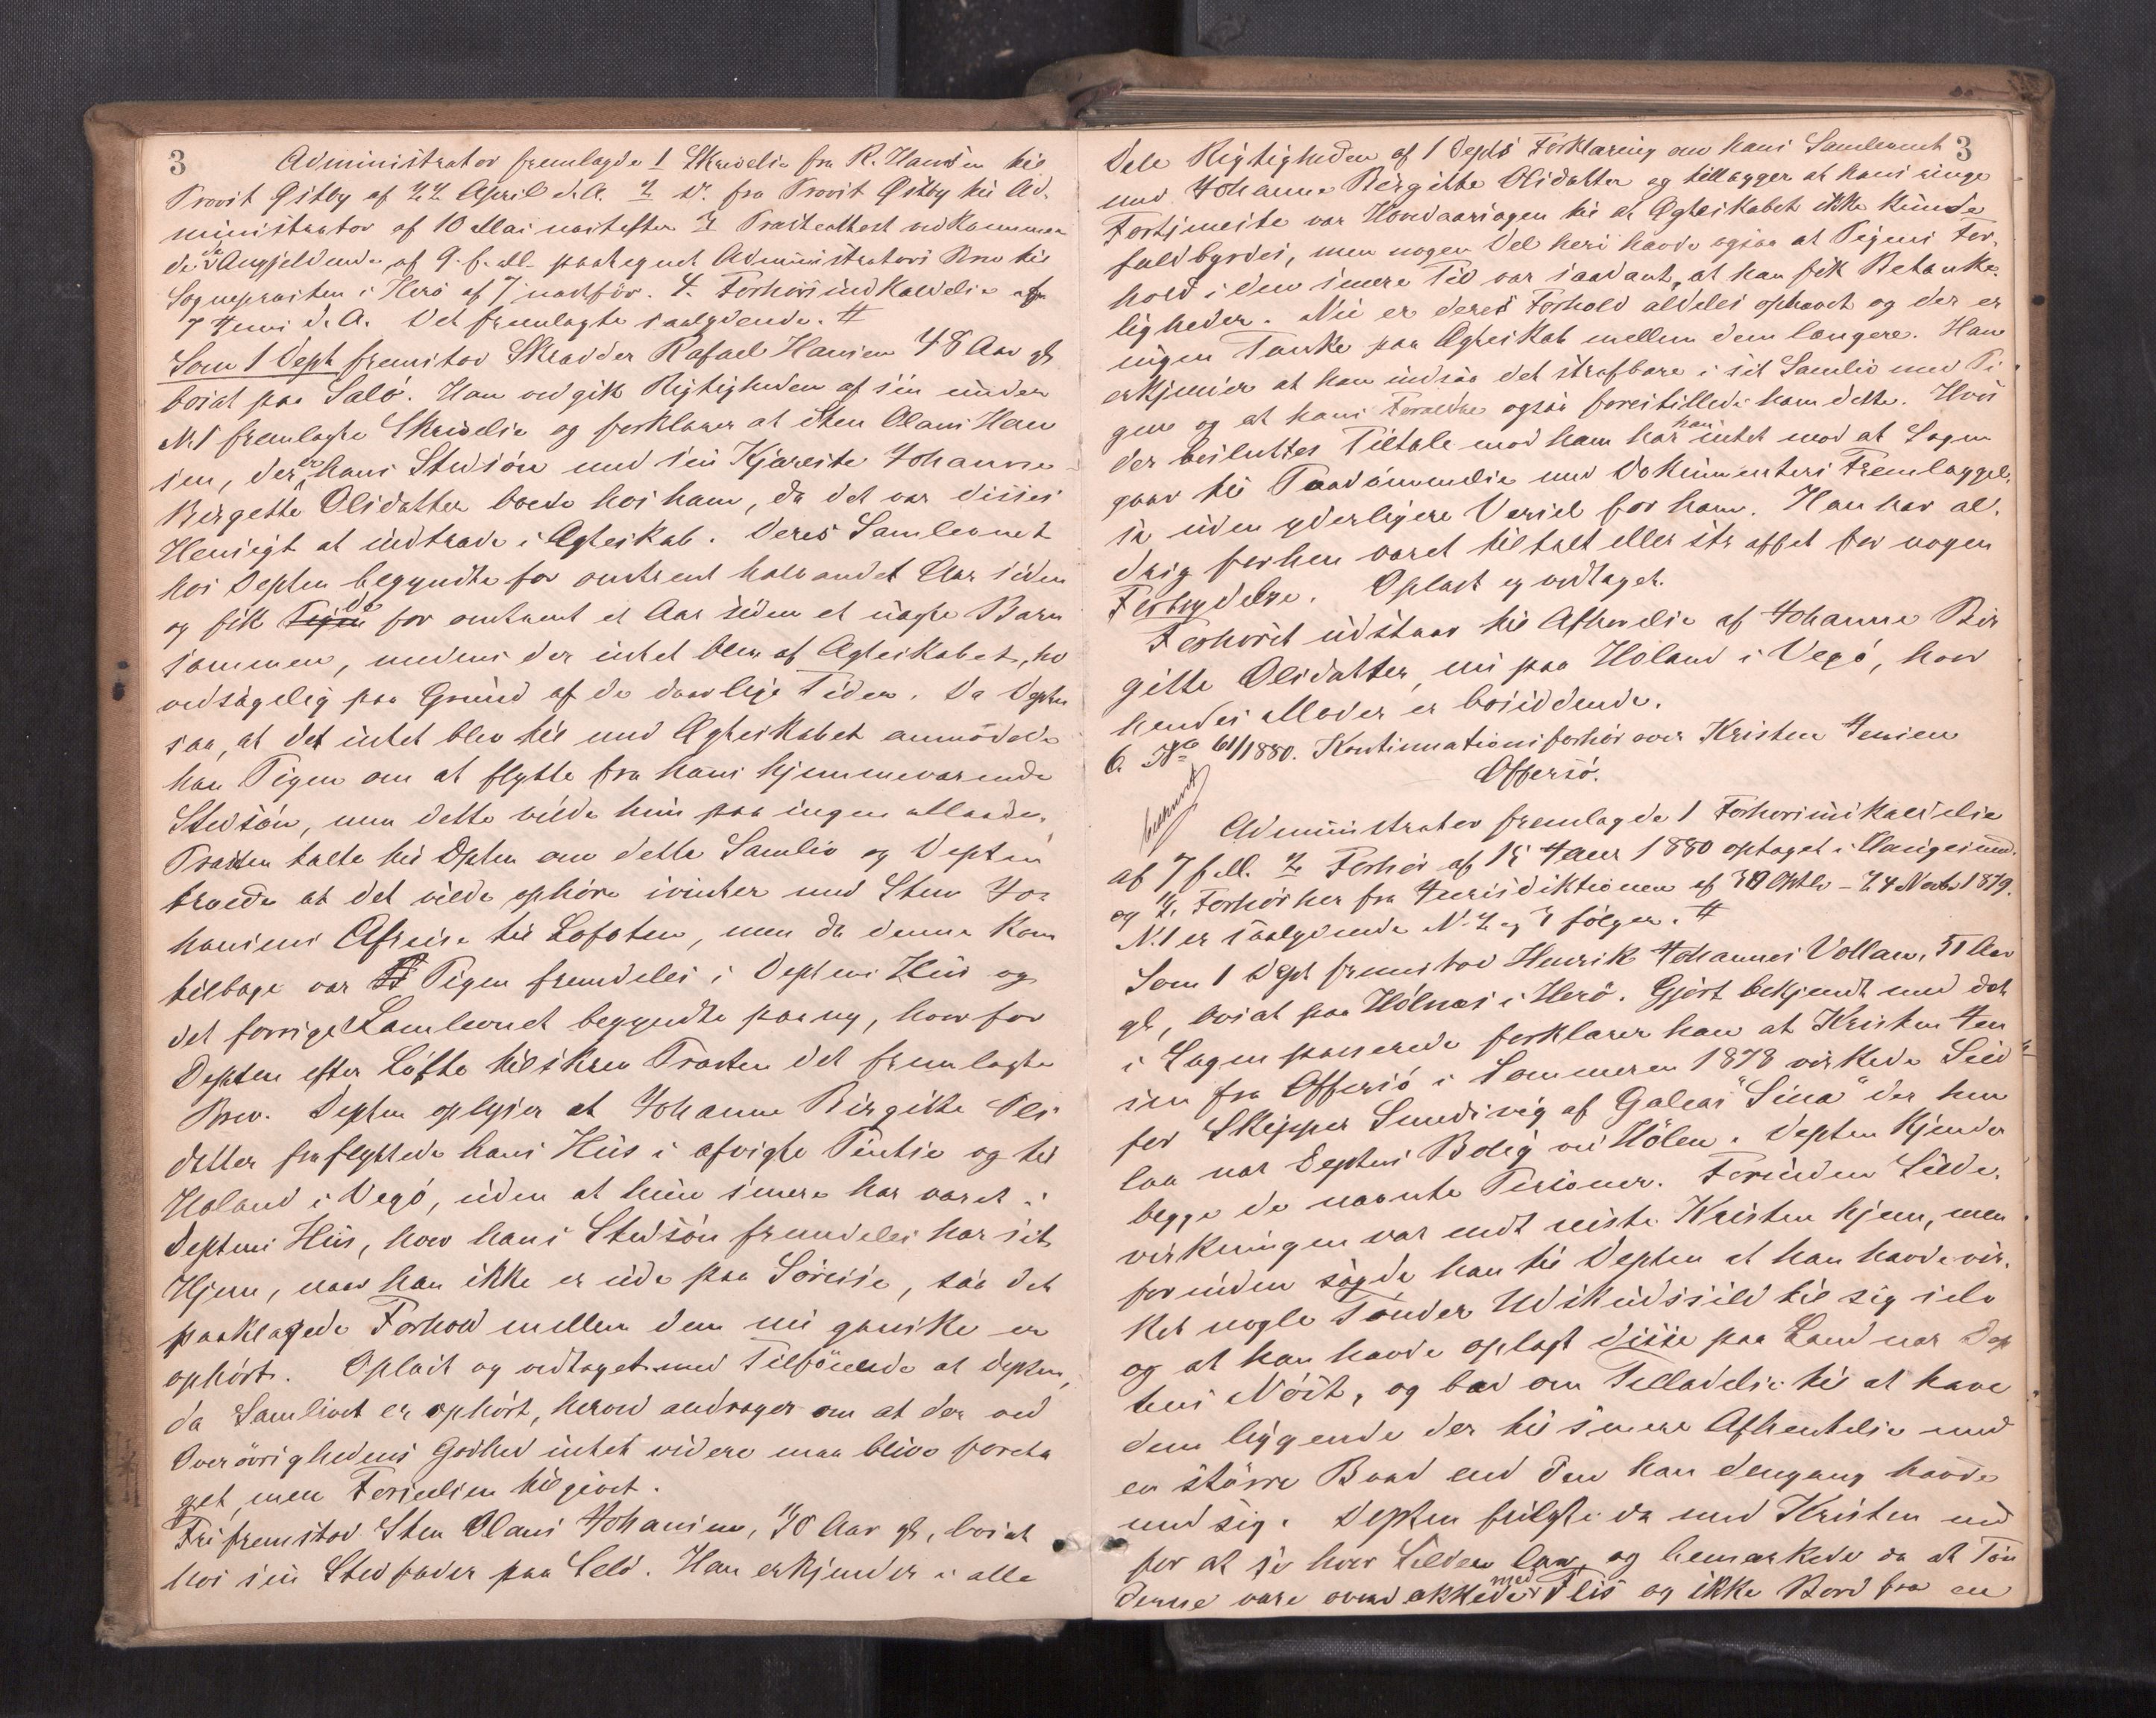 3
Administrator fremlagde 1 Skrivelse fra R. Hansen til
Provst Østby af 22 April d.A. 2 D. fra Provst Østby til Ad-
ministrator af 10 Mai næstefter 3 Præsteattest vedkommen
de de Angjeldende af 9. f. M. paategnet Administrators Brev til
Sognepræsten i Herø af 7 næstfør. 4. Forhørsindkaldelse af
7 Juni d.A. Det fremlagte saalydende. #
Som 1 Dept fremstod Skrædder Rafael Hansen 48 Aar gl
bosat paa Salø. Han vedgik Rigtigheden af sin under
No 1 fremlagte Skrivelse og forklarer at Sten Olaus Han
sen, der er hans Stedsøn med sin Kjæreste Johanne
Birgette Olsdatter boede hos ham, da det var disses
Hensigt at indtræde i Ægteskab. Deres Samlevnet
hos Depten begyndte for omtrent halvandet Aar siden
og fik de for omtrent et Aar siden et uægte Barn
sammen, medens der intet blev af Ægteskabet, ho
vedsagelig paa Grund af de daarlige Tider. Da Depten
saa, at det intet blev til med Ægteskabet anmodede
han Pigen om at flytte fra hans hjemmeværende
Stedsøn, men dette vilde hun paa ingen Maade.
Præsten talte til Dpten om dette Samliv og Depten
troede at det vilde ophøre ivinter med Sten Jo-
hansens Afreise til Lofoten, men da denne kom
tilbage var Pigen fremdeles i Deptens Hus og
det forrige Samlevnet begyndte paa ny, hvorfor
Depten efter Løfte tilskrev Præsten det fremlagte
Brev. Depten oplyser at Johanne Birgitte Ols
datter fraflyttede hans Hus i afvigte Pintse og til
Holand i Vegø, uden at hun senere har været i
Deptens Hus, hvor hans Stedsøn fremdeles har sit
Hjem, naar han ikke er ude paa Søreise, saa det
paaklagede Forhold mellem dem nu ganske er
ophørt. Oplæst og vedtaget med Tilføiende at Depten,
da Samlivet er ophørt, herved andrager om at der ved
Overøvrighedens Godhed intet videre maa blive foreta
get, men Forseelsen tilgivet.
Fri fremstod Sten Olaus Johansen, 30 Aar gl, bosat
hos sin Stedfader paa Selø. Han erkjender i alle
3
Dele Rigtigheden af 1 Depts Forklaring om hans Samlevnet
med Johanne Birgitte Olsdatter og tillægger at hans ringe
Fortjeneste var Hovedaarsagen til at Ægteskabet ikke kunde
fuldbyrdes, men nogen Del heri havde ogsaa at Pigens For-
hold i den senere Tid var saadant, at han fik Betænke-
ligheder. Nu er deres Forhold aldeles ophævet og der er
ingen Tanke paa Ægteskab mellem dem længere. Han
erkjender at han indsaa det strafbare i sit Samliv med Pi-
gen og at hans Forældre ogsaa forestillede ham dette. Hvis
der besluttes Tiltale mod ham har han intet mod at Sagen
gaar til Paadømmelse med Dokumenters Fremlæggel-
se uden yderligere Varsel for ham. Han har al-
drig forhen været tiltalt eller straffet for nogen
Forbrydelse. Oplæst og vedtaget.
Forhøret udstaar til Afhørelse af Johanne Bir
gitte Olsdatter, nu paa Holand i Vegø, hvor
hendes Moder er bosiddende.
6. No 61/1880. Kontinuationsforhør over Kristen Jensen
Offersø.
Administrator fremlagde 1 Forhørsindkaldelse
af 7 f. M. 2 Forhør af 15 Janr 1880 optaget i
og 3. Forhør her fra Jurisdiktionen af 30 Oktbr - 24 Novbr 1879.
No 1 er saalydende No 2 og 3 følger. #
Som 1 Dept fremstod Henrik Johannes Vollan, 51 Aar
gl, bosat paa Hølnæs i Herø. Gjort bekjendt med det
i Sagen passerede forklarer han at Kristen Jen
sen fra Offersø i Sommeren 1878 virkede Sild
for Skipper Sundsvig af Galeas "Sina" der hen
laa nær Deptens Bolig ved Hølen. Depten kjender
begge de nævnte Personer. Forinden Silde-
virkningen var endt reiste Kristen hjem, men
forinden sagde han til Depten at han havde vir-
ket nogle Tønder Udskudssild til sig selv
og at han havde oplagt disse paa Land nær Dep
tens Nøst, og bad om Tilladelse til at have
dem liggende der til senere Afhentelse med
en større Baad end den han dengang havde
med sig. Depten fulgte da med Kristen ned
for at se hvor Silden laa, og bemærkede da at Tøn
derne vare overdækkede med Flis og ikke Bord fra en